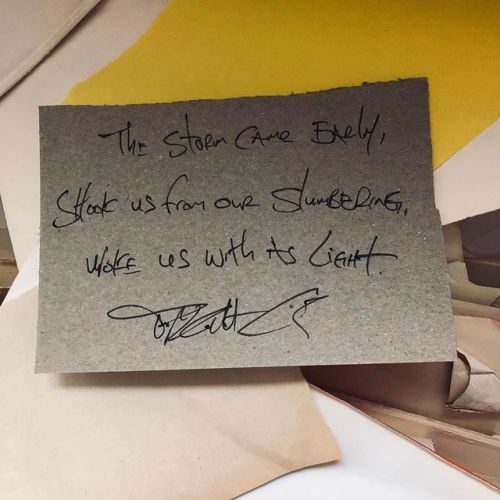 The Storm came Early,
Shook us from our Slumbering,
Woke us with its Light.